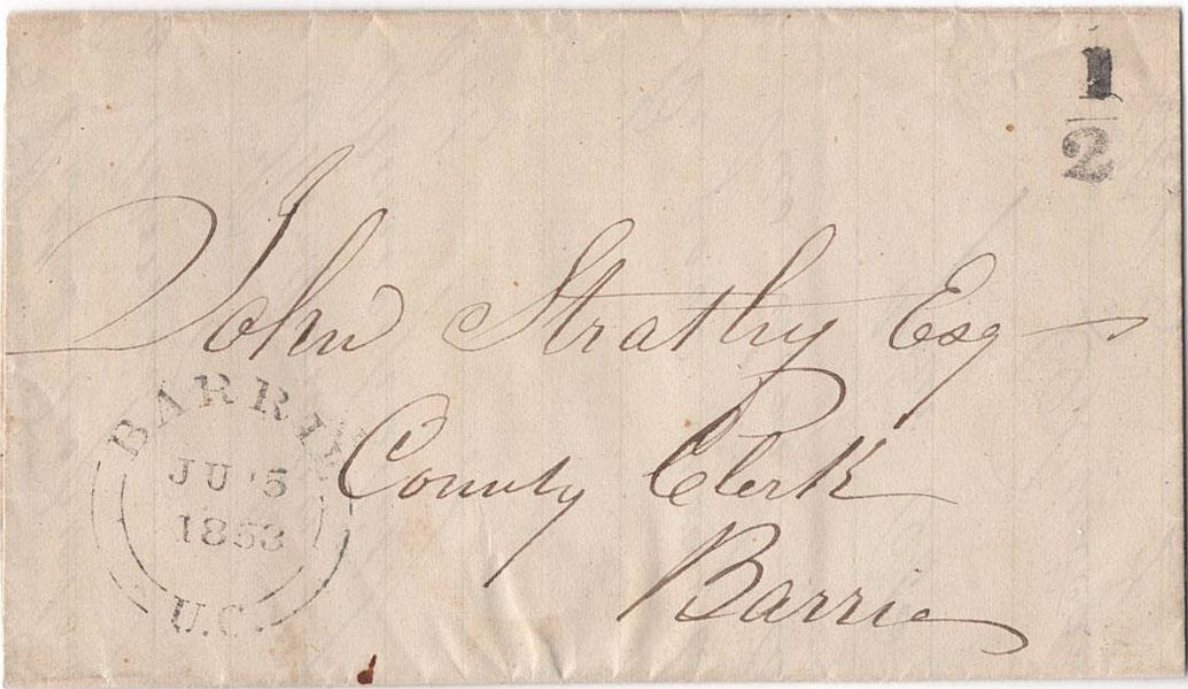 1/2
John Strathy Esq
County Clerk
Barrie
BARRIE
JU 5
1853
U.C.